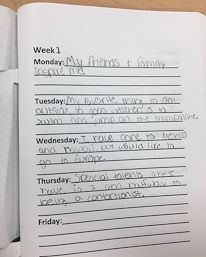 Week 1
Monday: My friends + family
inspire me.
Tuesday: My favorite thing to do
outside in good weather is to
swim and jump on the trampoline.
Wednesday: I have gone to
and Hawaii but would like to
go to Europe.
Thursday: Special talents
have is I am halfway to
being a contortionist.
Friday: